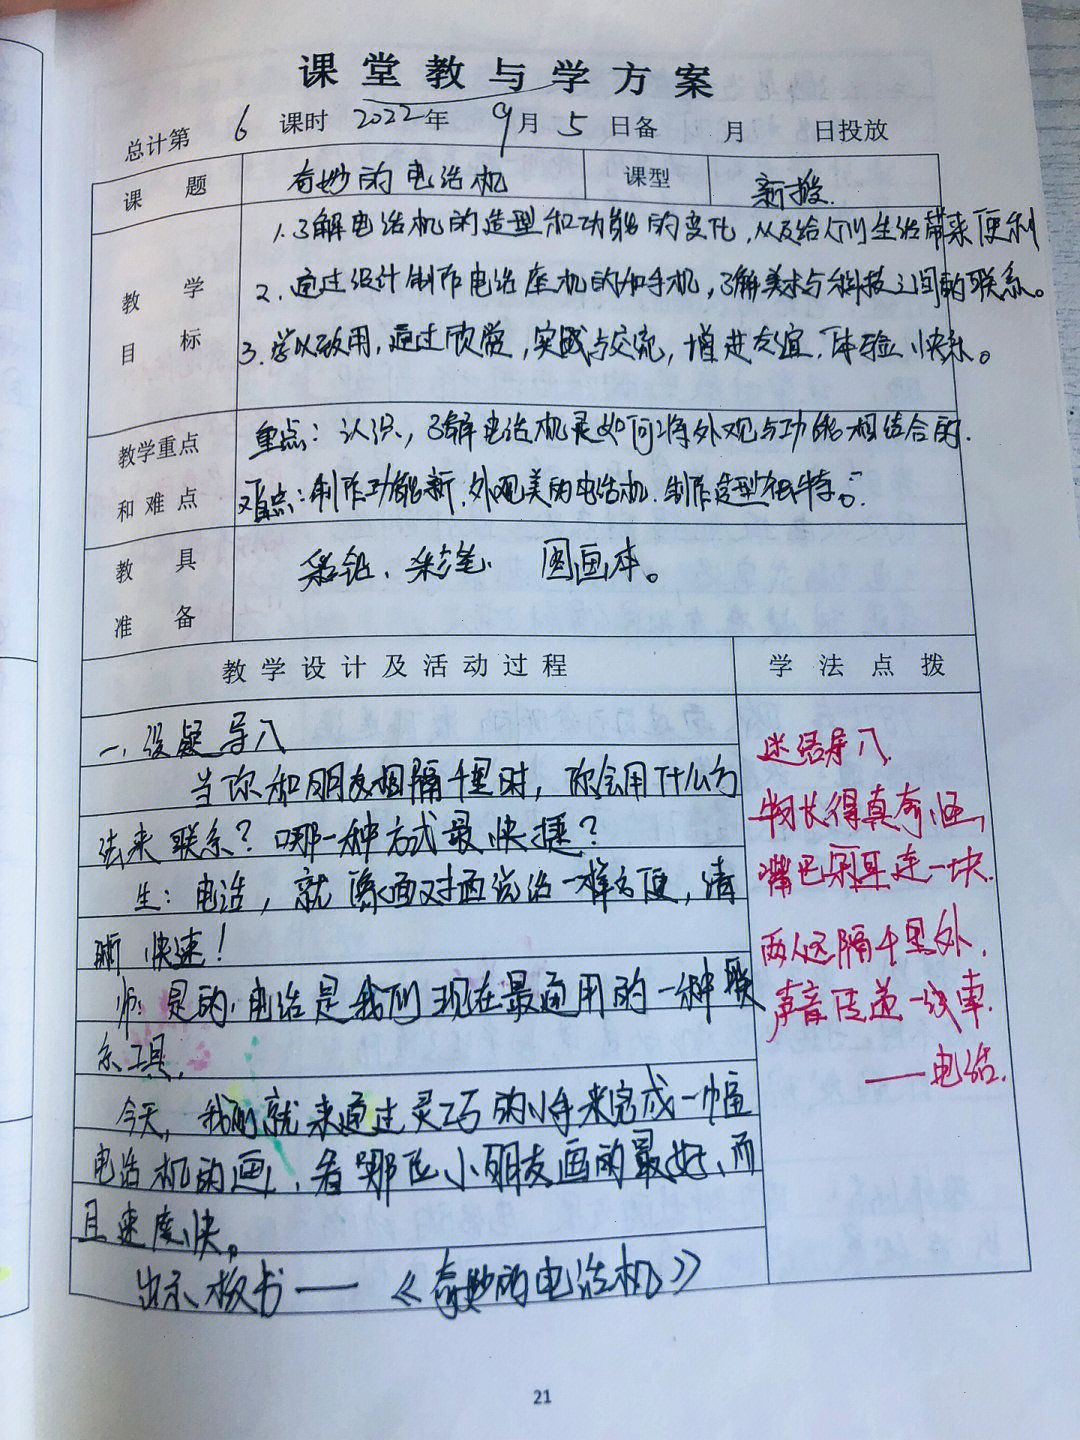 课堂教与学方案
总计第 6 课时 2022年 9月 5日备 月 日投放
课题 奇妙的电话机 课型 新授.
教学目标
1.了解电话机的造型和功能的变化,以及给人们生活带来便利
2.通过设计制作电话座机的和手机,了解美术与科技之间的联系。
3.学以致用,通过欣赏,实践与交流,增进友谊,体验快乐。
教学重点和难点
重点:认识,了解电话机是如何将外观与功能相结合的.
难点:制作功能新.外观美的电话机.制作造型独特。
教具准备 彩铅、彩笔、图画本。
教学设计及活动过程 学法点拨
一.设疑导入
当你和朋友相隔千里时,你会用什么方
法来联系?哪一种方式最快捷?
生:电话,就像面对面说话一样方便,清
晰快速!
师:是的,电话是我们现在最通用的一种联
系工具,
今天,我们就来通过灵巧的小手来完成一幅
电话机的画,看哪位小朋友画的最好,而
且速度快。
出示板书——《奇妙的电话机》
迷语导入
物长得真奇怪,
嘴巴耳连一块.
两人远隔千里外,
声音传递一线牵.
——电话.
21